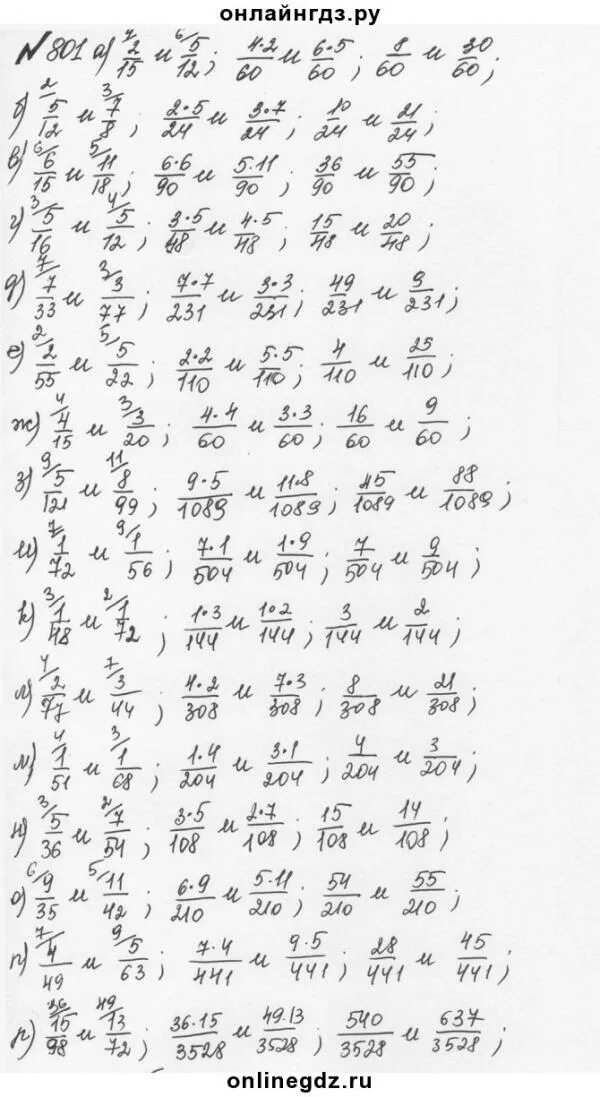 онлайнгдз.ру
№801 а) 7/ 2/15 и 6/ 5/12; 4·2/60 и 6·5/60; 8/60 и 30/60;
б) 2/ 5/12 и 3/ 7/8; 2·5/24 и 3·7/24; 10/24 и 21/24;
в) 6/ 6/15 и 5/ 11/18; 6·6/90 и 5·11/90; 36/90 и 55/90;
г) 3/ 5/16 и 4/ 5/12; 3·5/48 и 4·5/48; 15/48 и 20/48;
д) 7/ 7/33 и 3/ 3/77; 7·7/231 и 3·3/231; 49/231 и 9/231;
е) 2/ 2/55 и 5/ 5/22; 2·2/110 и 5·5/110; 4/110 и 25/110;
ж) 4/ 4/15 и 3/ 3/20; 4·4/60 и 3·3/60; 16/60 и 9/60;
з) 9/ 5/121 и 11/ 8/99; 9·5/1089 и 11·8/1089; 45/1089 и 88/1089;
и) 7/ 1/72 и 9/ 1/56; 7·1/504 и 1·9/504; 7/504 и 9/504;
к) 3/ 1/48 и 2/ 1/72; 1·3/144 и 1·2/144; 3/144 и 2/144;
л) 4/ 2/77 и 7/ 3/44; 4·2/308 и 7·3/308; 8/308 и 21/308;
м) 4/ 1/51 и 3/ 1/68; 1·4/204 и 3·1/204; 4/204 и 3/204;
н) 3/ 5/36 и 2/ 7/54; 3·5/108 и 2·7/108; 15/108 и 14/108;
о) 6/ 9/35 и 5/ 11/42; 6·9/210 и 5·11/210; 54/210 и 55/210;
п) 7/ 4/49 и 9/ 5/63; 7·4/441 и 9·5/441; 28/441 и 45/441;
р) 36/ 15/98 и 49/ 13/72; 36·15/3528 и 49·13/3528; 540/3528 и 637/3528;
onlinegdz.ru